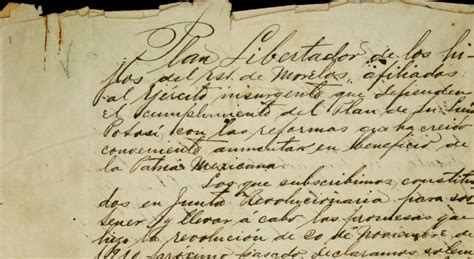 Plan Libertador de los hi-
jos del Est. de Morelos, afiliados
al Ejército insurgente que defienden
el cumplimiento del Plan de Sn Luis
Potosí con las reformas que ha creido
conveniente aumentar en beneficio de
la Patria Mexicana.
Los que subscribimos, constitui-
dos en Junta Revolucionaria para sos-
tener y llevar a cabo las promesas que
hizo la revolución de 20 de Noviembre de
1910 próximo pasado declaramos solem